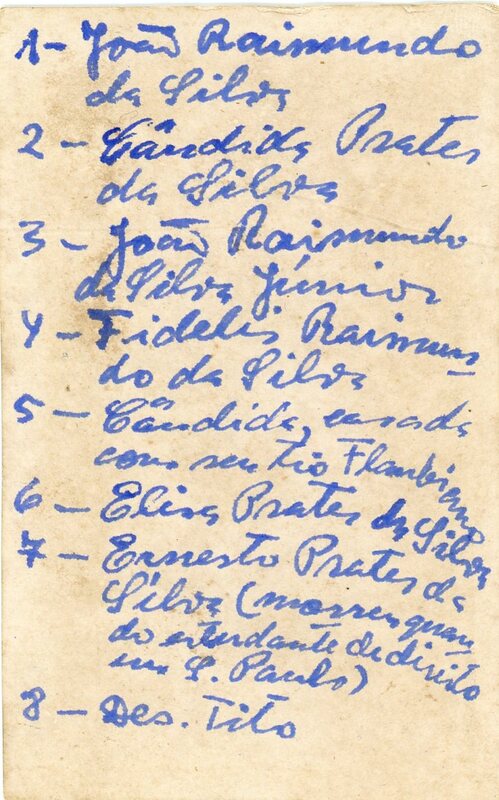 1- João Raimundo
da Silva
2 - Cândida Prates
da Silva
3 - João Raimundo
da Silva Júnior
4 - Fidelis Raimun-
do da Silva
5 - Cândida, casada
com seu tio Flaubiano
6 - Elisa Prates da Silva
7 - Ernesto Prates da
Silva (morreu quan
do estudante de direito
em S. Paulo)
8 - Des. Tito